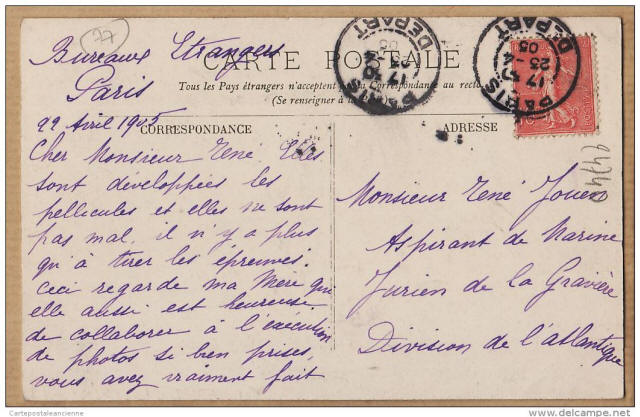 77
Bureaux Etrangers
Paris
CARTE POSTALE
Tous les Pays étrangers n'acceptent pas la Correspondance au recto
(Se renseigner à la Poste)
22 Avril 1905
CORRESPONDANCE
ADRESSE
Cher Monsieur René. Elles
sont développées les
pellicules et elles ne sont
pas mal, il n'y a plus
qu'à tirer les épreuves.
Ceci regarde ma Mère qui
elle aussi est heureuse
de collaborer à l'exécution
de photos si bien prises,
vous avez vraiment fait
Monsieur René Jouen
Aspirant de Marine
Jurien de la Gravière
Division de l'atlantique
PARIS
DEPART
17 30
23 -4
05
PARIS
DEPART
17
23 -4
05
Cartepostaleancienne
delcampe.net